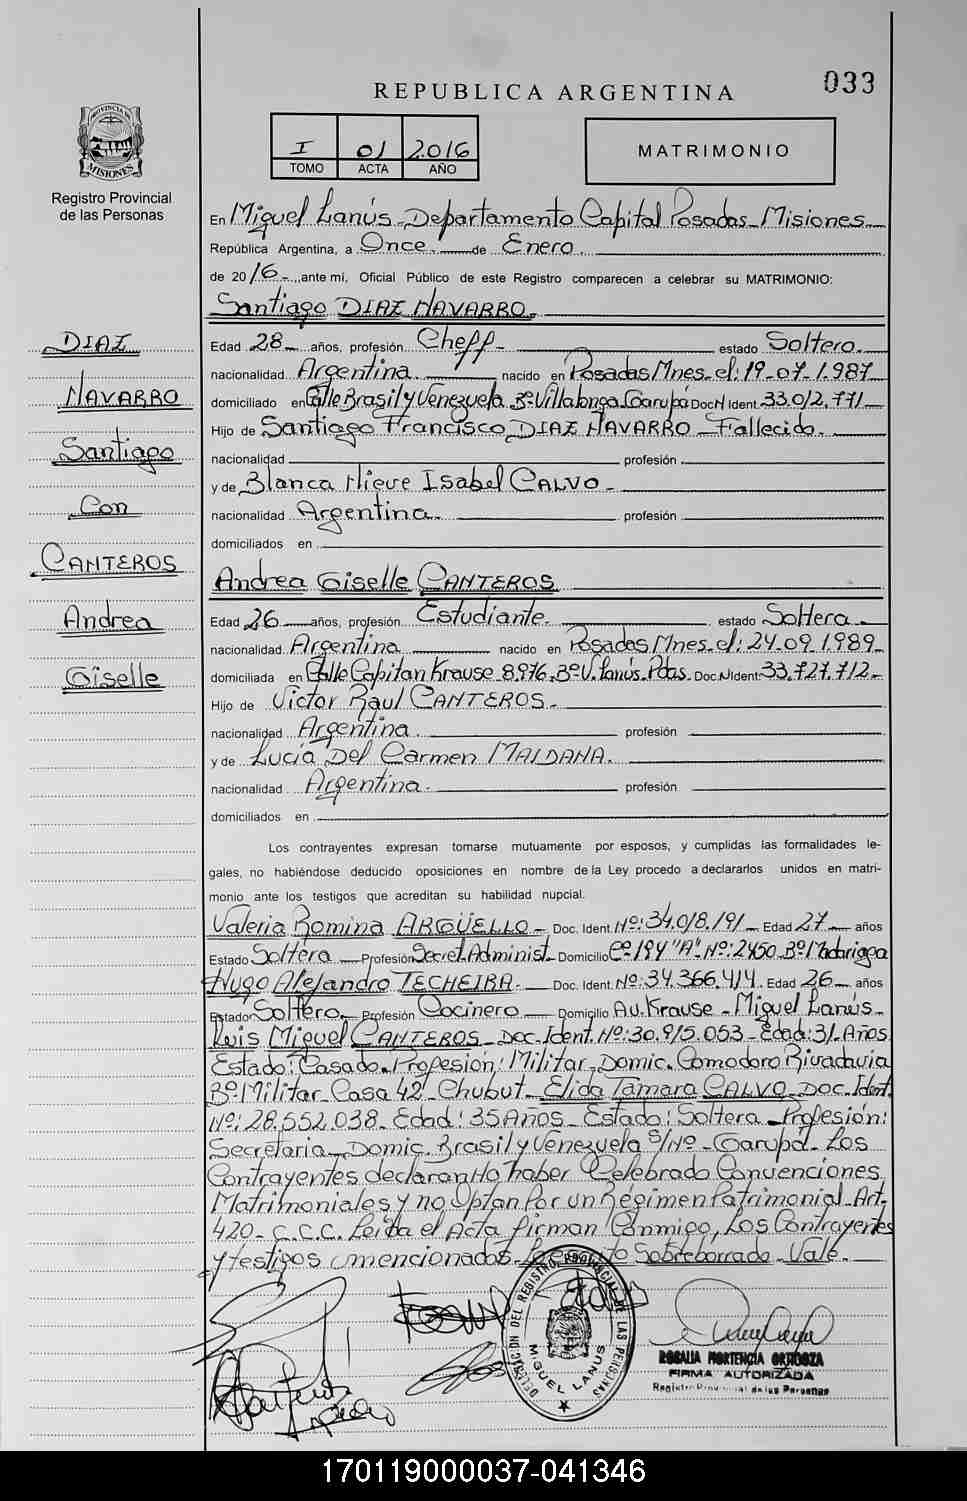 033
REPUBLICA ARGENTINA
I 01 2.016
TOMO ACTA AÑO
MATRIMONIO
PROVINCIA DE MISIONES
Registro Provincial
de las Personas
En Miguel Lanús - Departamento Capital Posadas - Misiones
República Argentina, a Once de Enero
de 2016 - ante mí, Oficial Público de este Registro comparecen a celebrar su MATRIMONIO:
Santiago DIAZ NAVARRO.
DIAZ
NAVARRO
Santiago
Con
CANTEROS
Andrea
Giselle
Edad 28 - años, profesión Cheff - estado Soltero.
nacionalidad Argentina. nacido en Posadas Mnes. el: 19-07-1.987
domiciliado en Calle Brasil y Venezuela Bº Villalonga Garupá Doc N Ident. 33.012.771
Hijo de Santiago Francisco DIAZ NAVARRO - Fallecido.
nacionalidad profesión
y de Blanca Nieve Isabel CALVO -
nacionalidad Argentina. profesión
domiciliados en
Andrea Giselle CANTEROS
Edad 26 años, profesión Estudiante. estado Soltera.
nacionalidad Argentina nacido en Posadas Mnes. el: 24.09.1.989
domiciliada en Calle Capitan Krause 8.976, Bº V. Lanús. Pdas. Doc. N Ident. 33.727.712
Hijo de Victor Raul CANTEROS.
nacionalidad Argentina profesión
y de Lucia Del Carmen MALDANA.
nacionalidad Argentina. profesión
domiciliados en
Los contrayentes expresan tomarse mutuamente por esposos, y cumplidas las formalidades le-
gales, no habiéndose deducido oposiciones en nombre de la Ley procedo a declararlos unidos en matri-
monio ante los testigos que acreditan su habilidad nupcial.
Valeria Romina ARGÜELLO - Doc. Ident. Nº: 34.018.191 - Edad 27 - años
Estado Soltera - Profesión Secret. Administ. Domicilio Cº 194 "A" Nº: 2450 Bº Madariaga
Hugo Alejandro TECHEIRA. Doc. Ident. Nº: 34.366.414. Edad 26 - años
Estado Soltero. Profesión Cocinero Domicilio Av. Krause - Miguel Lanús -
Luis Miguel CANTEROS - Doc. Ident. Nº: 30.915.053 - Edad: 31 Años
Estado: Casado. Profesión: Militar. Domic. Comodoro Rivadavia
Bº Militar - Casa 42 - Chubut - Elida Tamara CALVO. Doc. Ident.
Nº: 28.552.038 - Edad: 35 Años - Estado: Soltera - Profesión:
Secretaria - Domic. Brasil y Venezuela S/Nº - Garupá - Los
Contrayentes declaran No haber Celebrado Convenciones
Matrimoniales y no Optan Por un Régimen Patrimonial - Art.
420 - C.C.C. Leida el Acta firman Conmigo, Los Contrayentes
y testigos mencionados. Sobreborrado - Vale -
DELEGACION DEL REGISTRO PROVINCIAL DE LAS PERSONAS
MIGUEL LANUS
ROSALIA HORTENCIA
FIRMA AUTORIZADA
Registro Provincial de las Personas
170119000037-041346